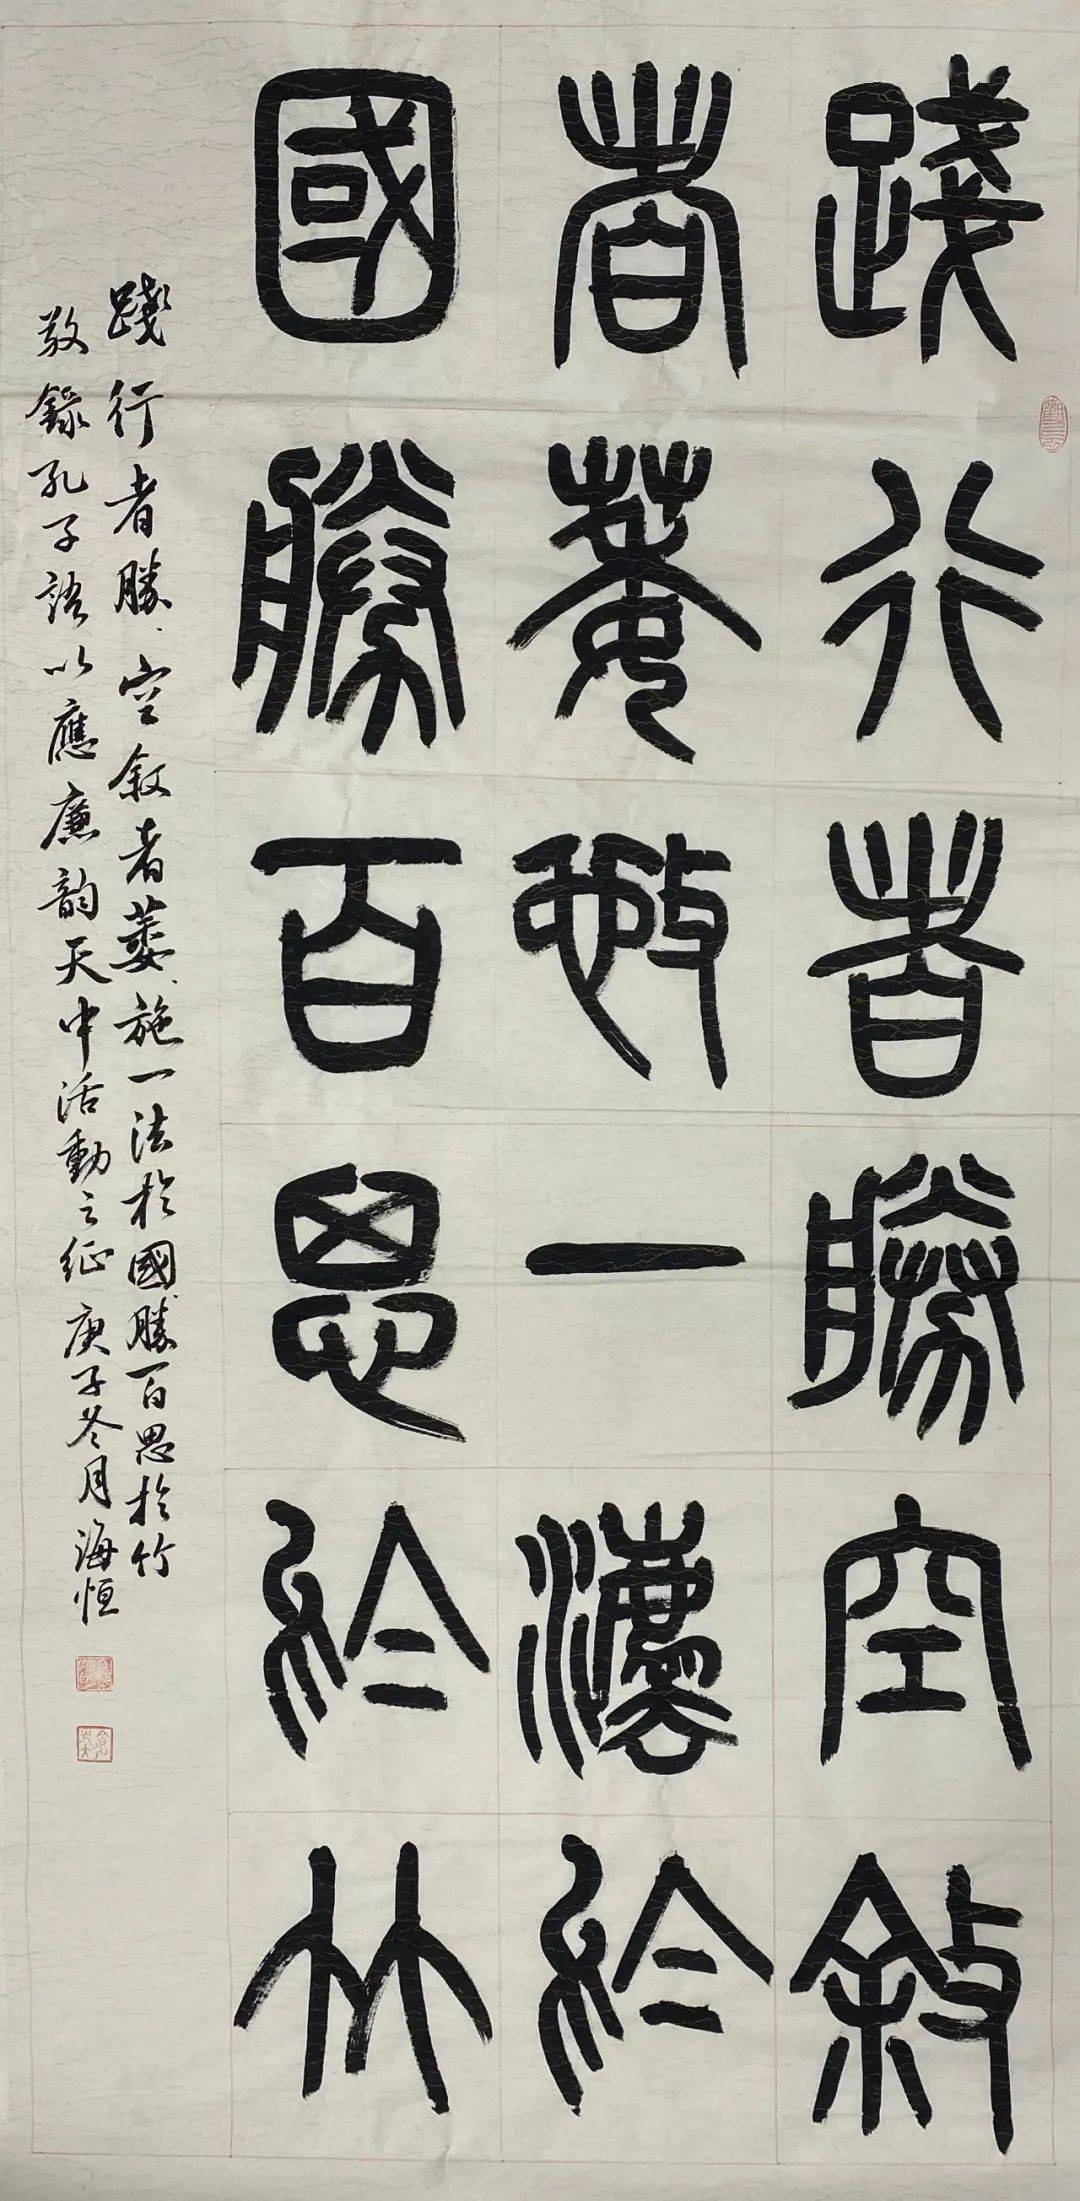 踐行者勝空敘
者萎㪉一灋於
國勝百思於竹
踐行者勝空叙者萎施一法於國勝百思於竹
敬錄孔子語以應廉韵天中活動之征庚子冬月海恒